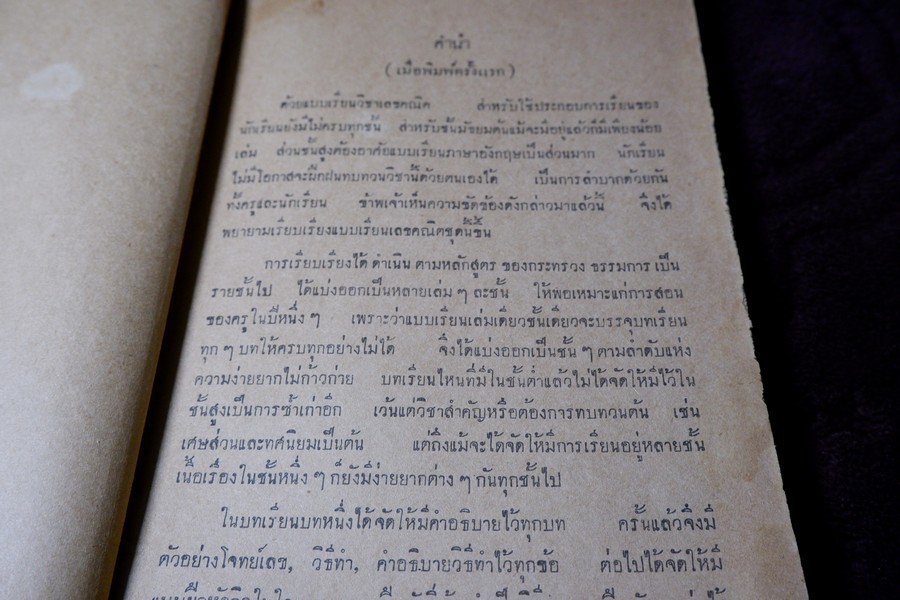 คำนำ
( เมื่อพิมพ์ครั้งแรก )
ด้วยแบบเรียนวิชาเลขคณิต สำหรับใช้ประกอบการเรียนของ
นักเรียนยังมีไม่ครบทุกชั้น สำหรับชั้นมัธยมต้นแม้จะมีอยู่แล้วก็มีเพียงน้อย
เล่ม ส่วนชั้นสูงต้องอาศัยแบบเรียนภาษาอังกฤษเป็นส่วนมาก นักเรียน
ไม่มีโอกาสจะฝึกฝนทบทวนวิชานี้ด้วยตนเองได้ เป็นการลำบากด้วยกัน
ทั้งครูและนักเรียน ข้าพเจ้าเห็นความขัดข้องดังกล่าวมาแล้วนี้ จึงได้
พยายามเรียบเรียงแบบเรียนเลขคณิตชุดนี้ขึ้น
การเรียบเรียงได้ ดำเนิน ตามหลักสูตร ของกระทรวง ธรรมการ เป็น
รายชั้นไป ได้แบ่งออกเป็นหลายเล่ม ๆ ละชั้น ให้พอเหมาะแก่การสอน
ของครูในปีหนึ่ง ๆ เพราะว่าแบบเรียนเล่มเดียวชั้นเดียวจะบรรจุบทเรียน
ทุก ๆ บทให้ครบทุกอย่างไม่ได้ จึงได้แบ่งออกเป็นชั้น ๆ ตามลำดับแห่ง
ความง่ายยากไม่ก้าวก่าย บทเรียนไหนที่มีในชั้นต่ำแล้วไม่ได้จัดให้มีไว้ใน
ชั้นสูงเป็นการซ้ำเก่าอีก เว้นแต่วิชาสำคัญหรือต้องการทบทวนต้น เช่น
เศษส่วนและทศนิยมเป็นต้น แต่ถึงแม้จะได้จัดให้มีการเรียนอยู่หลายชั้น
เนื้อเรื่องในชั้นหนึ่ง ๆ ก็ยังมีง่ายยากต่าง ๆ กันทุกชั้นไป
ในบทเรียนบทหนึ่งได้จัดให้มีคำอธิบายไว้ทุกบท ครั้นแล้วจึงมี
ตัวอย่างโจทย์เลข, วิธีทำ, คำอธิบายวิธีทำไว้ทุกข้อ ต่อไปได้จัดให้มี